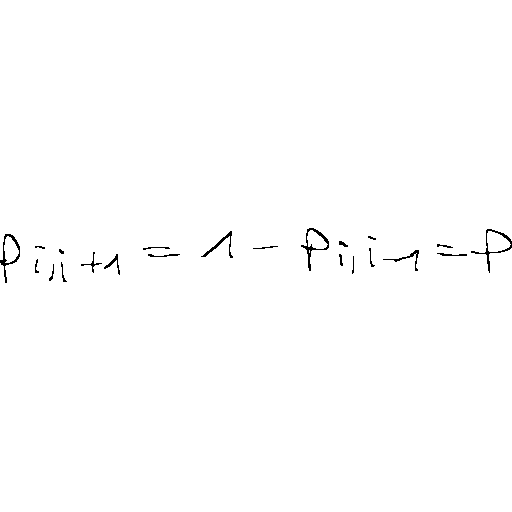 P_{i,i+1} = 1 - P_{i,i-1} = P